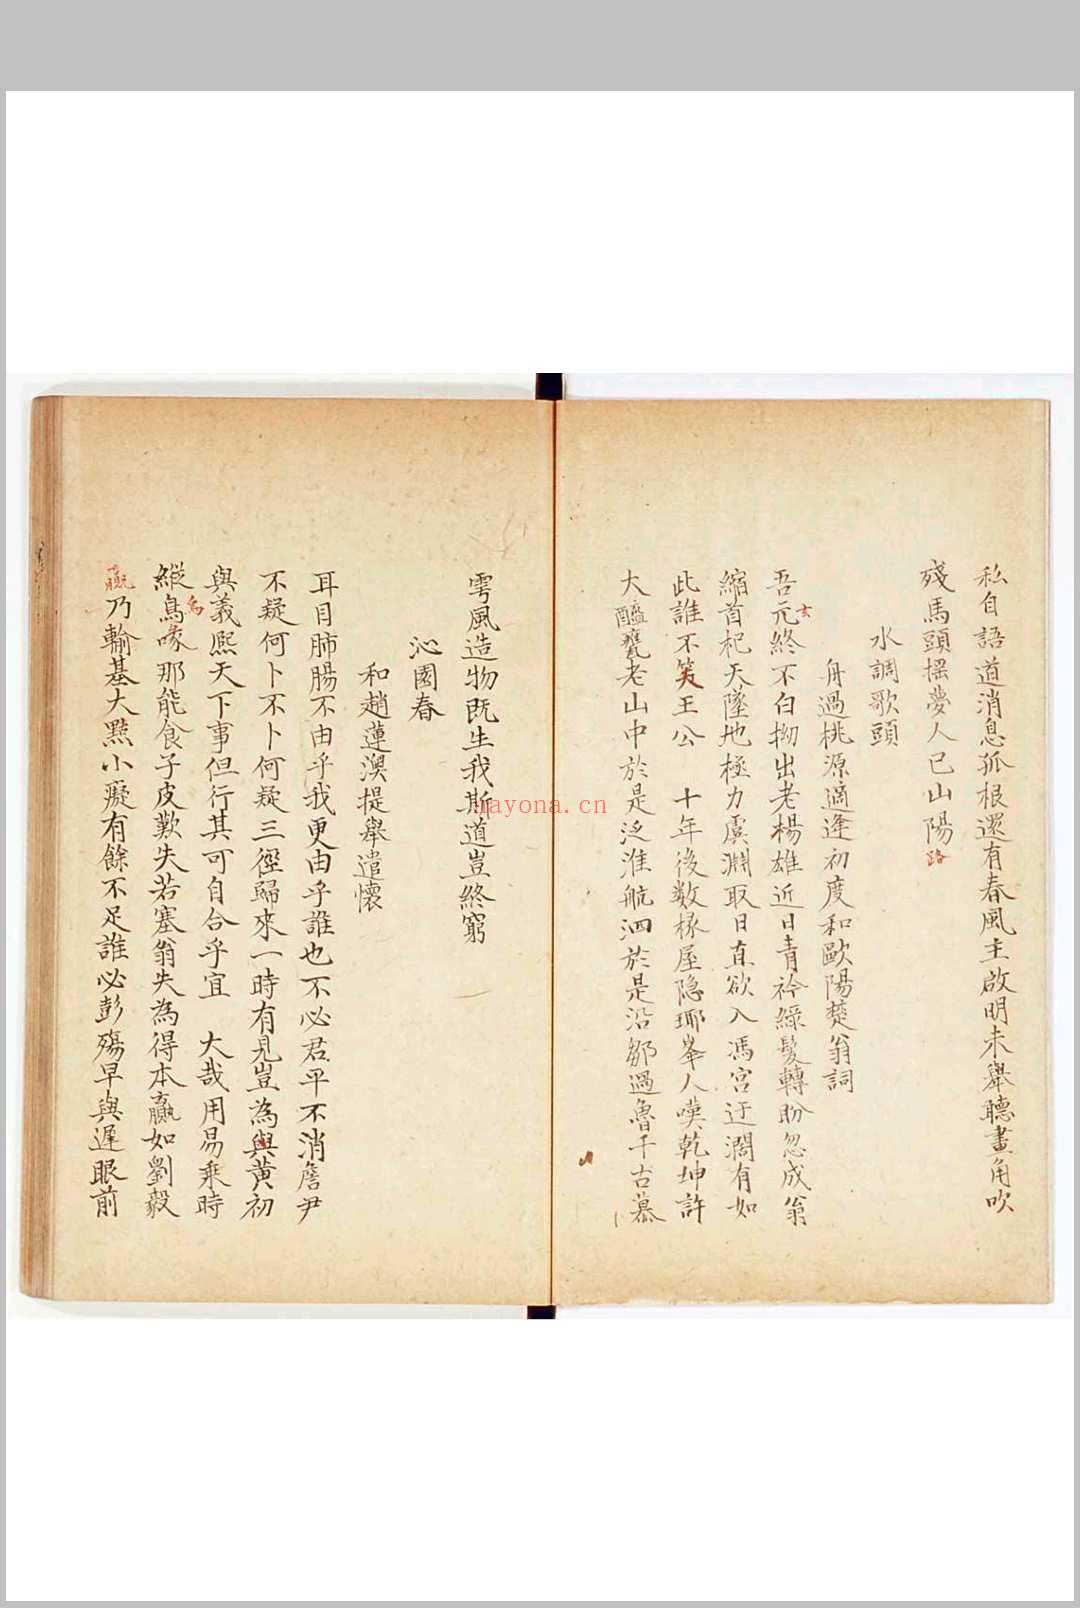 私自語道消息孤根還有春風主啟明未舉聽畫角吹
殘馬頭摇夢人已山陽路
水調歌頭
舟過桃源適逢初度和歐陽楚翁詞
吾元玄終不白拗出老楊雄近日青衿綠髮轉盼忽成翁
縮首杞天墬地極力虞淵取日直欲入馮宮迂濶有如
此誰不笑王公 十年後数椽屋隐瑘峯人嘆乾坤許
大醯甕老山中於是泛淮航泗於是沿鄒過魯千古慕
雩風造物既生我斯道豈終窮
沁園春
和趙蓮澳提舉遣懷
耳目肺腸不由乎我更由乎誰也不必君平不消詹尹
不疑何卜不卜何疑三徑歸來一時有見豈為與黄初
與義熙天下事但行其可自合乎宜 大哉用易乘時
縱鳥烏喙那能食子皮歎失若塞翁失為得本贏如劉毅
贏乃輸基大黠小癡有餘不足誰必彭殤早與遲眼前
nayona.cn